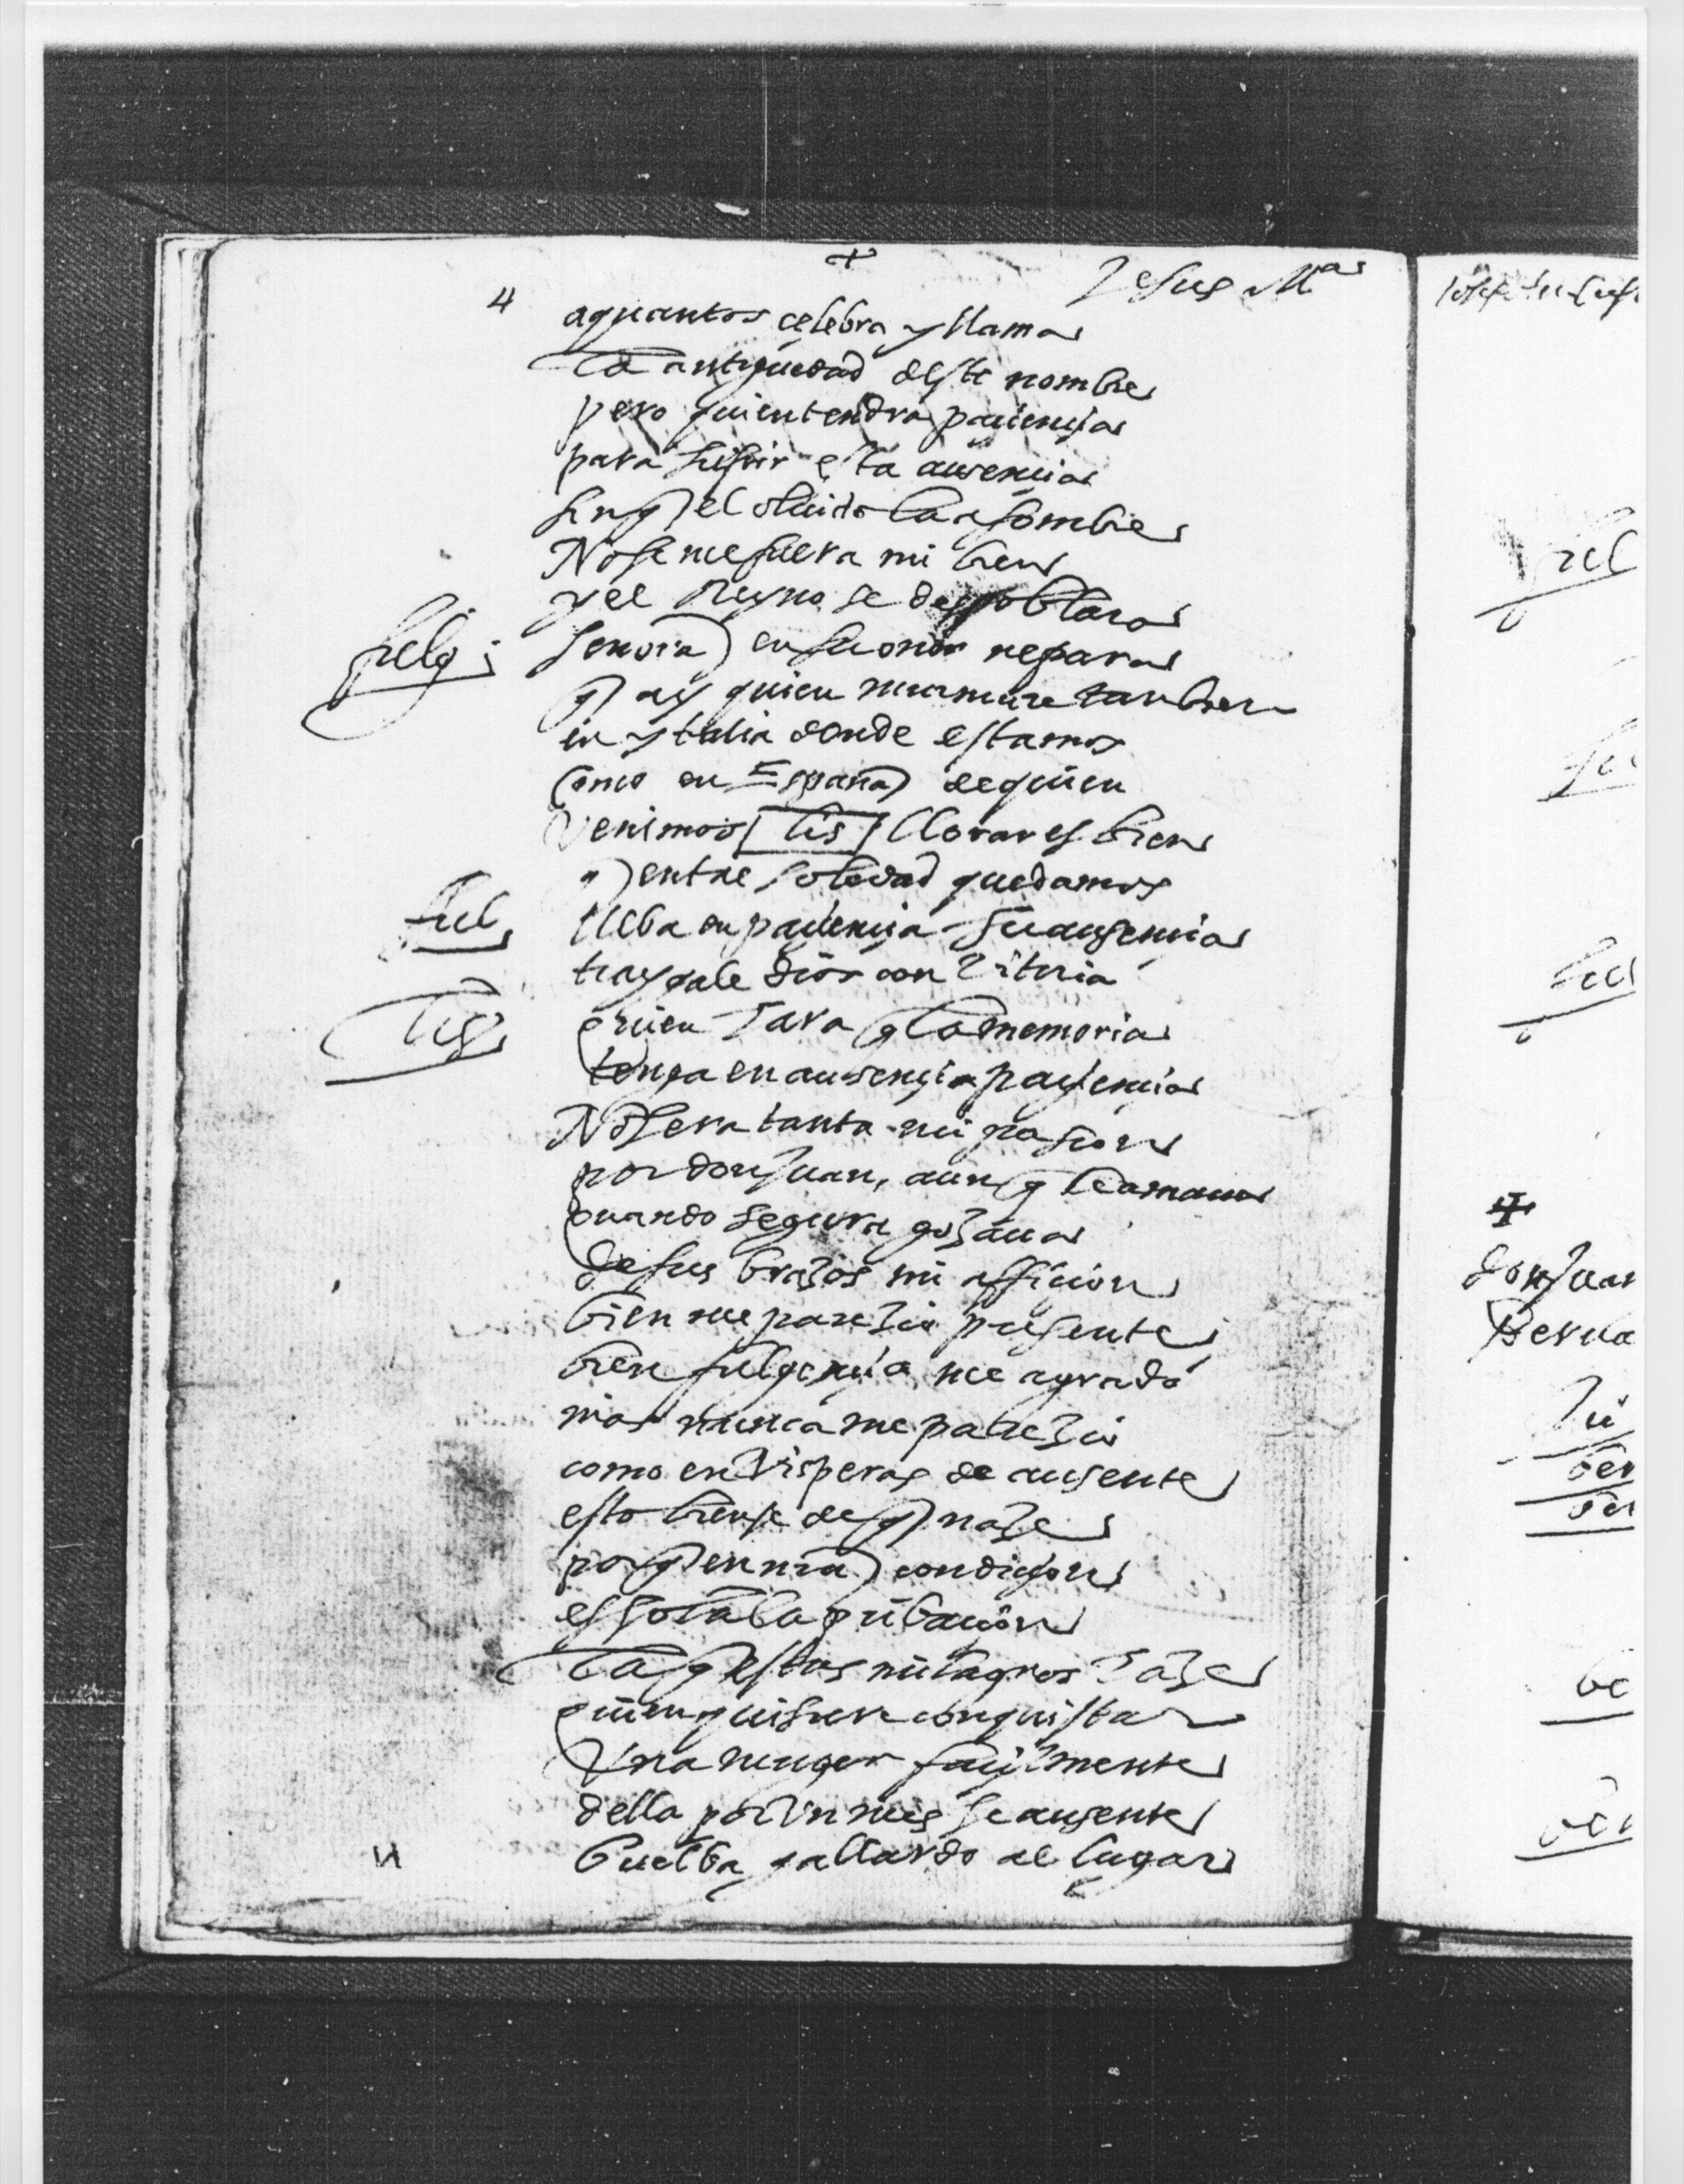 +
Jesus Mª
4
aquantos çelebra y llama
la antiguedad deste nombre
pero quien tendra paçiençia
para sufrir esta ausençia
sin q el oluido la asombre
No se me fuera mi bien
y el Reyno se despoblara
fulg; señora en su onor repara
q ay quien murmure tanbien
en ytalia donde estamos
como en España de quien
venimos lis llorar es bien
q en tre soledad quedamos
ful, lleba en paçiençia su ausençia
traygale dios con Vitoria
lis quien hara q la memoria
tenga en ausençia paçiençia
No era tanta mi pasion
por don Juan, aunq le amaua
quando segura gozaua
de sus brazos mi affiçion
bien me parezio presente
bien fulgençia me agrado
mas nunca me parezio
como en Visperas de ausente
esto bien se de q naze
porq en nra condiçion
es sola la pribaçion
la q estos milagros haze
quien quisiere conquistar
Vna muger façilmente
della por Vn mes se ausente
buelba gallardo al lugar
ful
don Juan